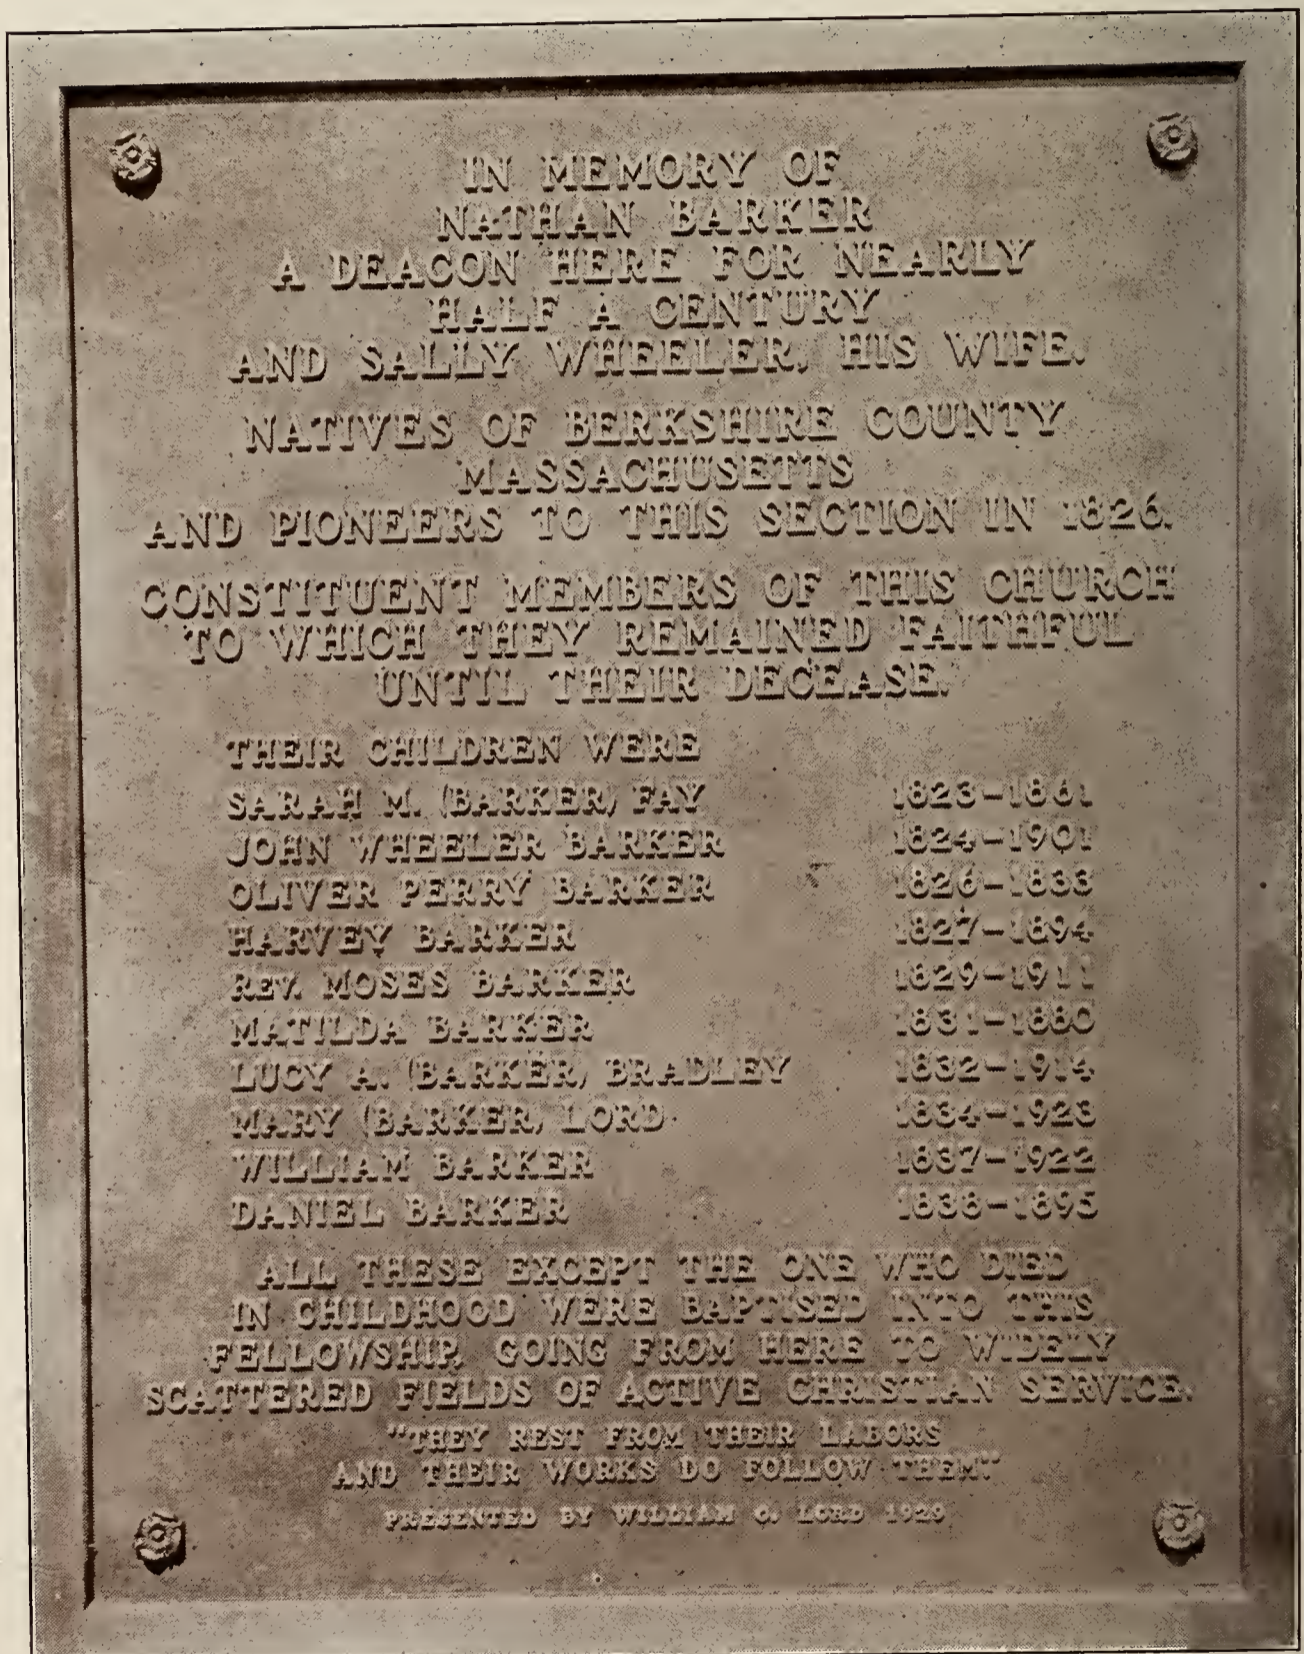 IN MEMORY OF
NATHAN BARKER
A DEACON HERE FOR NEARLY
HALF A CENTURY
AND SALLY WHEELER, HIS WIFE.
NATIVES OF BERKSHIRE COUNTY
MASSACHUSETTS
AND PIONEERS TO THIS SECTION IN 1826.
CONSTITUENT MEMBERS OF THIS CHURCH
TO WHICH THEY REMAINED FAITHFUL
UNTIL THEIR DECEASE.
THEIR CHILDREN WERE
SARAH M. (BARKER) FAY 1823-1861
JOHN WHEELER BARKER 1824-1901
OLIVER PERRY BARKER 1826-1833
HARVEY BARKER 1827-1894
REV. MOSES BARKER 1829-1911
MATILDA BARKER 1831-1880
LUCY A. (BARKER) BRADLEY 1832-1914
MARY (BARKER) LORD 1834-1923
WILLIAM BARKER 1837-1922
DANIEL BARKER 1838-1895
ALL THESE EXCEPT THE ONE WHO DIED
IN CHILDHOOD WERE BAPTISED INTO THIS
FELLOWSHIP, GOING FROM HERE TO WIDELY
SCATTERED FIELDS OF ACTIVE CHRISTIAN SERVICE.
"THEY REST FROM THEIR LABORS
AND THEIR WORKS DO FOLLOW THEM"
PRESENTED BY WILLIAM O. LORD 1929